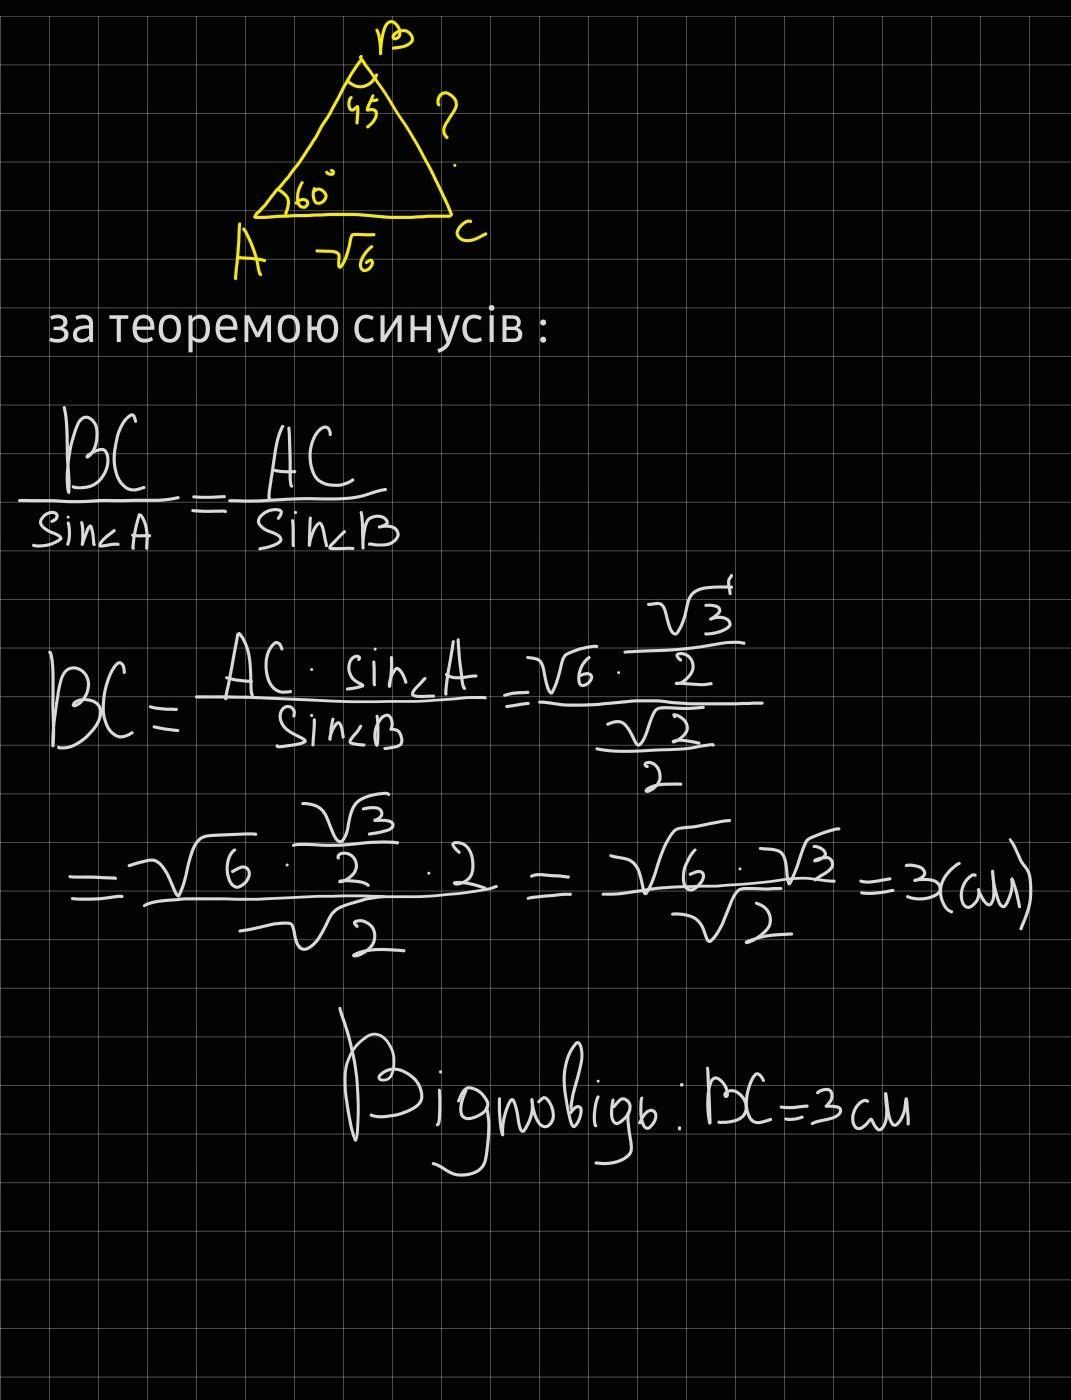 B
45
?
60°
A √6 C
за теоремою синусів :
BC/sin∠A = AC/sin∠B
BC = (AC · sin∠A)/(sin∠B) = (√6 · √3/2)/(√2/2)
= (√6 · √3/2 · 2)/√2 = (√6 · √3)/√2 = 3(см)
Відповідь: BC = 3 см